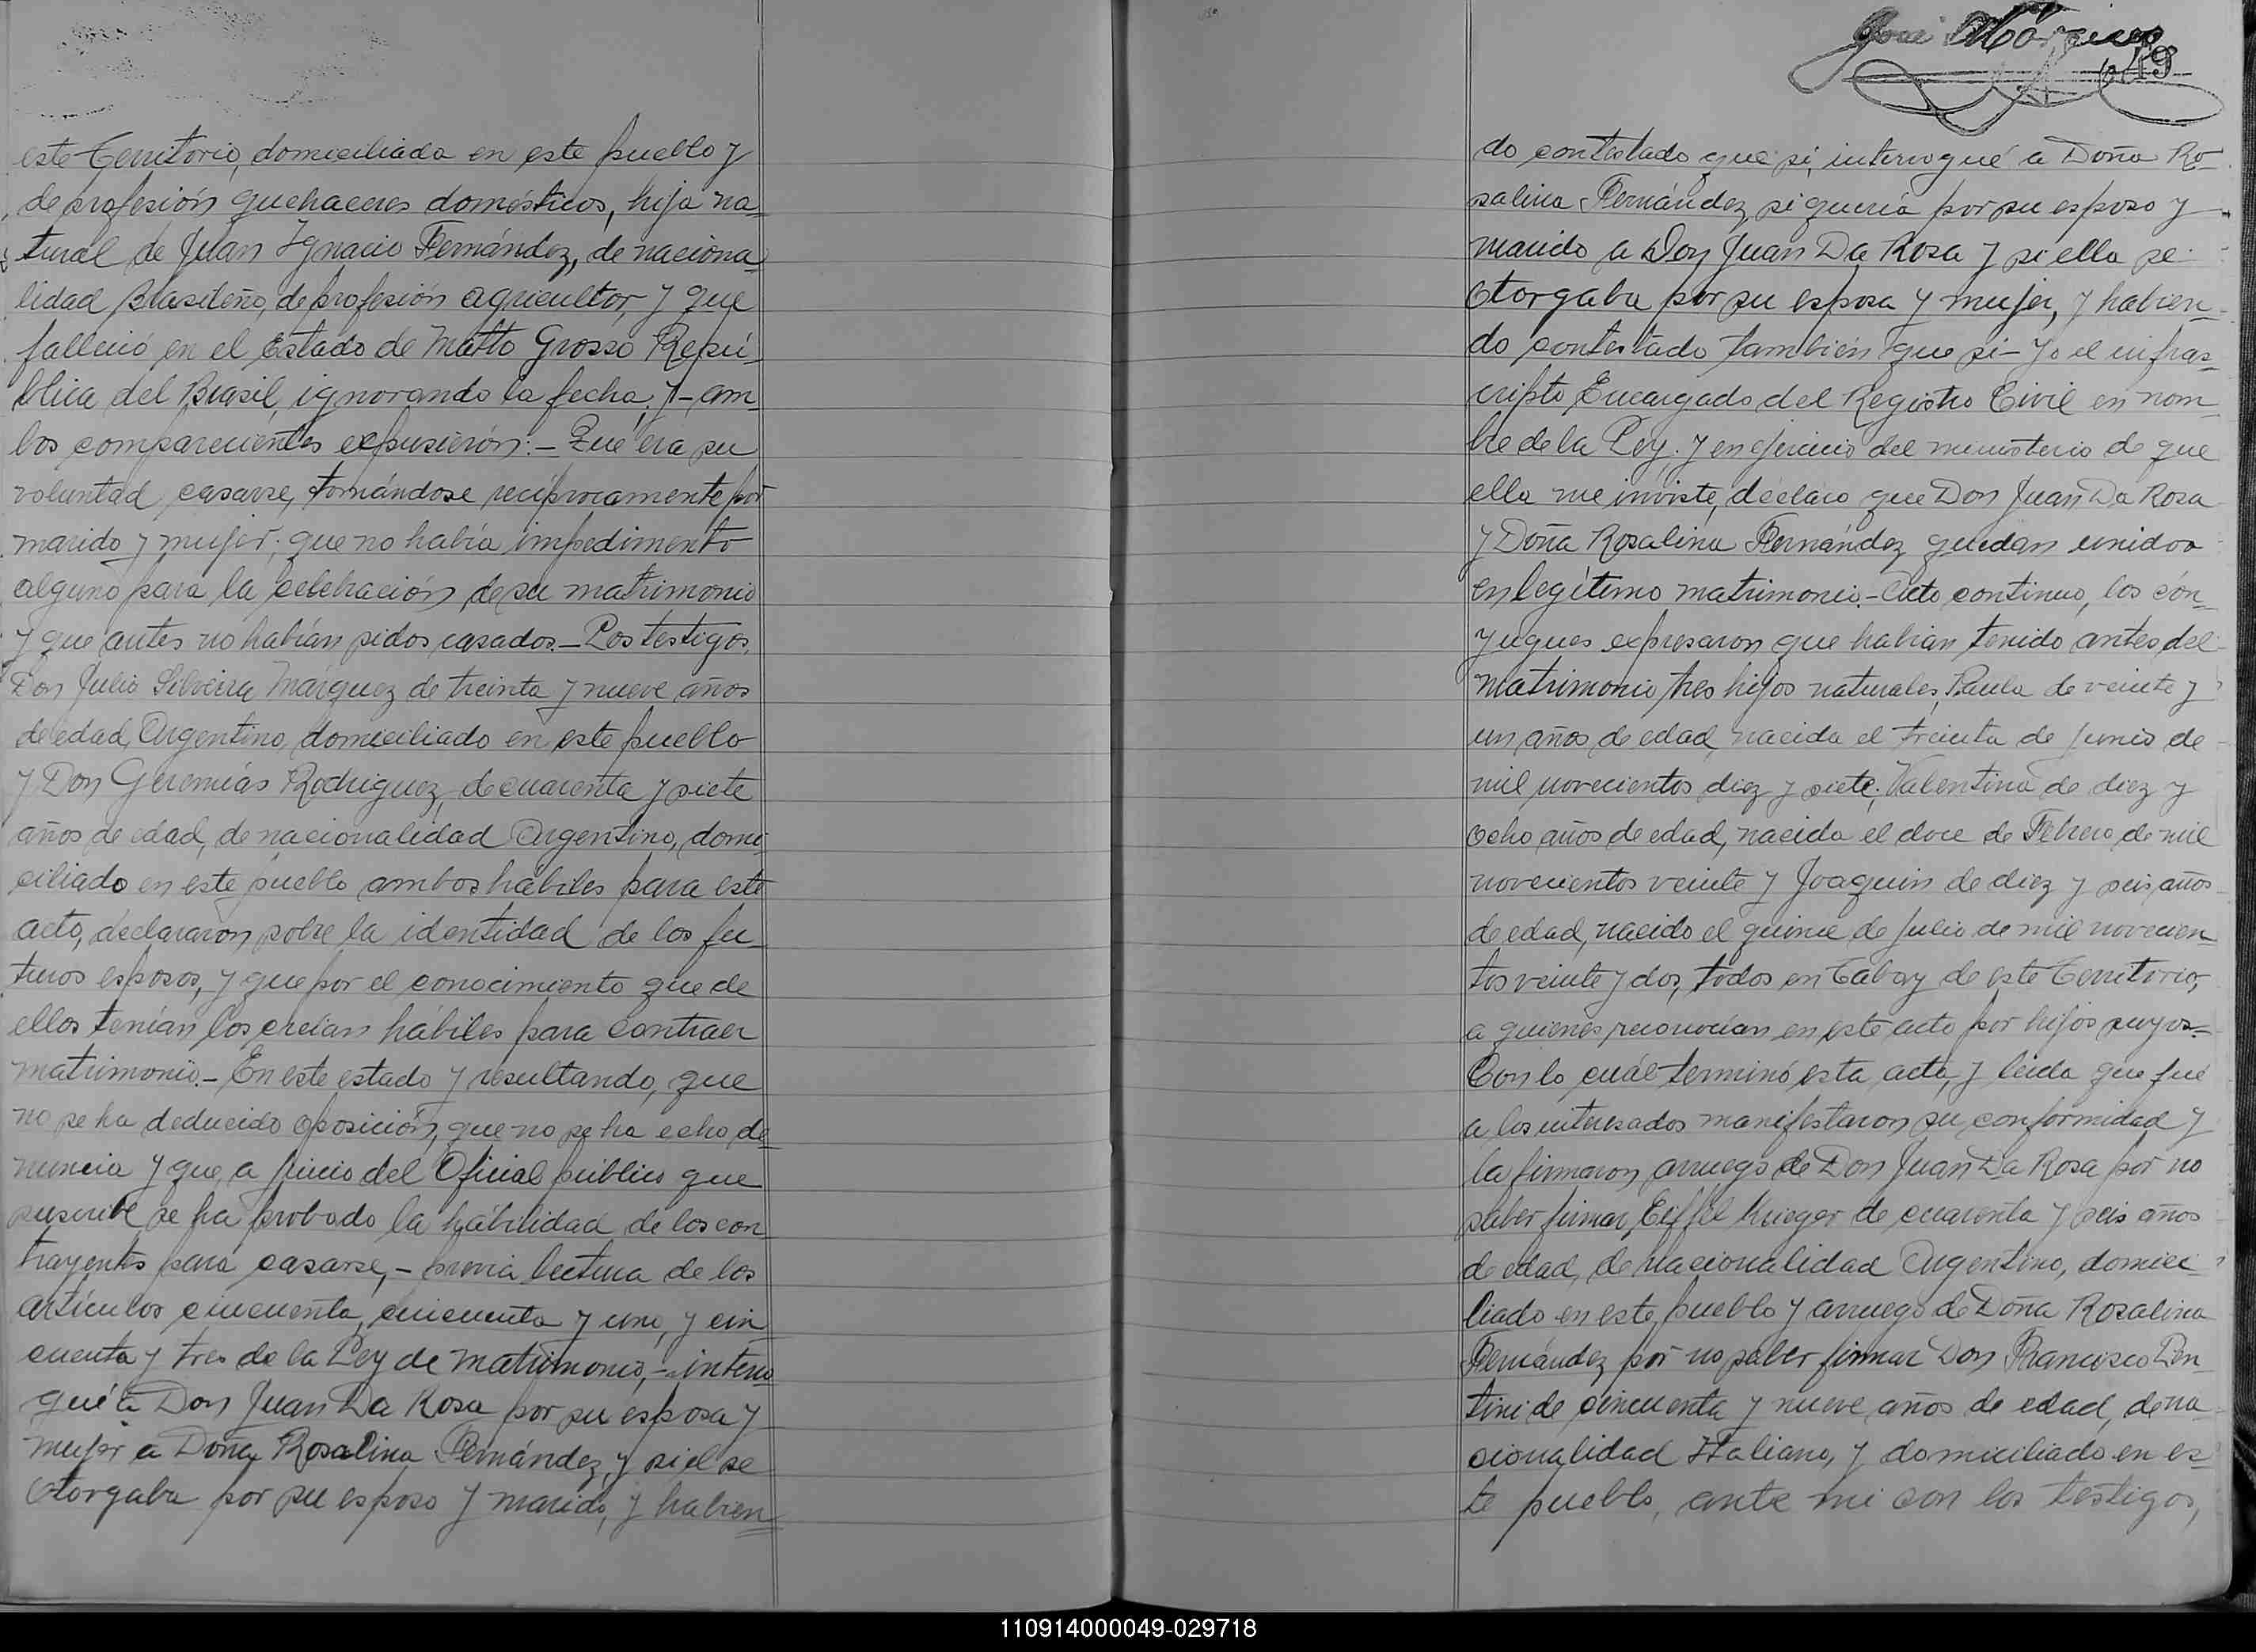 este Territorio, domiciliada en este pueblo y
de profesión quehaceres domésticos, hija na_
tural de Juan Ygnacio Fernández, de naciona_
lidad Brasileño, de profesión agricultor, y que
falleció en el Estado de Matto Grosso Repú_
blica del Brasil, ignorando la fecha. Y – am_
bos comparecientes expusierón: – Qué era su
voluntad casarse, tomándose recíprocamente por
marido y mujer; que no había impedimento
alguno para la celebración de su matrimonio
y que antes no habían sidos casados. – Los testigos,
Don Julio Silveira Márquez de treinta y nueve años
de edad, Argentino, domiciliado en este pueblo
y Don Geremías Rodriguez, de cuarenta y siete
años de edad, de nacionalidad Argentino, domi_
ciliado en este pueblo ambos hábiles para este
acto, declararon sobre la identidad de los fu_
turos esposos, y que por el conocimiento que de
ellos tenían los creían hábiles para contraer
matrimonio. – En este estado y resultando, que
no se ha deducido oposición, que no se ha echo de_
nuncia y que, a juicio del Oficial público que
suscribe se ha probado la habilidad de los con_
trayentes para casarse, – previa lectura de los
artículos cincuenta, cincuenta y uno, y cin_
cuenta y tres de la Ley de Matrimonio, – interro
gué a Don Juan Da Rosa por su esposa y
mujer a Doña Rosalina Fernández, y si el se
otorgaba por su esposo y marido, y habien_
José
49
do contestado que si, interrogué a Doña Ro_
salina Fernández, si quería por su esposo y
marido a Don Juan Da Rosa y si ella se
otorgaba por su esposa y mujer, y habien_
do contestado también que si – Yo el infras_
cripto Encargado del Registro Civil en nom_
bre de la Ley. y en ejercicio del ministerio de que
ella me inviste, declaro que Don Juan Da Rosa
y Doña Rosalina Fernández quedan unidos
en legítimo matrimonio. – Acto continuo, los cón_
yugues expresaron que habían tenido antes del
matrimonio tres hijos naturales, Paula de veinte y
un años de edad, nacida el treinta de Junio de
mil novecientos diez y siete; Valentina de diez y
ocho años de edad, nacida el doce de Febrero de mil
novecientos veinte y Joaquin de diez y seis años
de edad, nacido el quince de Julio de mil novecien_
tos veinte y dos, todos en Tabay de este Territorio,
a quienes reconocían en este acto por hijos suyos. –
Con lo cuál terminó esta acta, y leida que fué
a los interesados manifestaron su conformidad y
la firmaron, arruego de Don Juan Da Rosa por no
saber firmar, Eiffel Krieger de cuarenta y seis años
de edad, de nacionalidad Argentino, domici_
liado en este pueblo y arruego de Doña Rosalina
Fernández por no saber firmar Don Francisco Len_
tini de cincuenta y nueve años de edad, de na_
cionalidad Italiano, y domiciliado en es_
te pueblo, ante mi con los testigos,
110914000049-029718